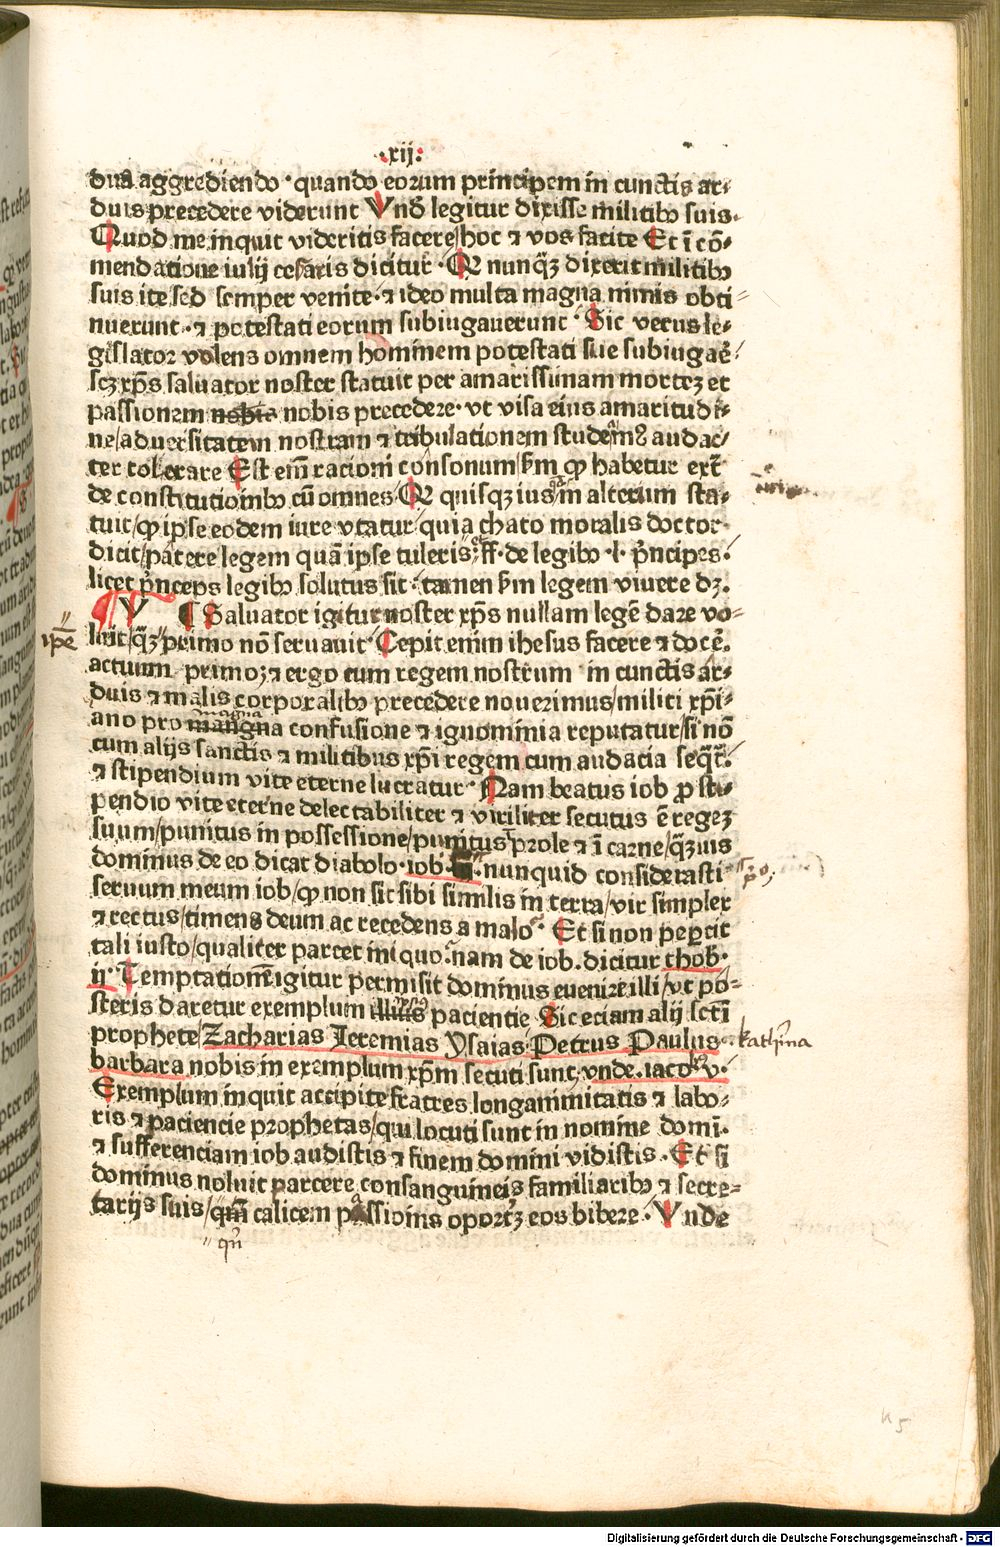 ·xij:
dua aggrediendo · quando eorum principem in cunctis ar⸗
duis precedere viderunt Vnd̄ legitur dixisse militibꝰ suis.
Quod me inquit videritis facere/hoc ⁊ vos facite Et ī cō⸗
mendatione iulij cesaris dicitur · Q nunqꝫ dixerit militibꝰ
suis ite sed semper venite · ⁊ ideo multa magna nimis obti⸗
nuerunt · ⁊ potestati eorum subiugauerunt · Sic verus le⸗
gislator volens omnem hominem potestati sue subiugaē/
scꝫ xp̄s saluator noster statuit per amarissimam mortēꝫ et
passionem nobis nobis precedere · vt visa eius amaritudi⸗
ne/aduersitatem nostram ⁊ tribulationem studeamꝰ audac/
ter tolerare Est em̄ racioni consonum/ẜm ꝙ habetur ext̄
de constitutioībꝰ cū omnes · Q quisqꝫ ius in alterum sta⸗
tuit/ꝙ ipse eodem iure vtatur/quia chato moralis doctor
dicit/patere legem quā ipse tuleris · ff · de legibꝰ · l · p̄ncipes ·
licet p̄nceps legibꝰ solutus sit · tamen ẜm legem viuere dꝫ.
V ¶ Saluator igitur noster xp̄s nullam legē dare vo⸗
ip̄e
luit/qꝫ primo nō seruauit Cepit enim ihesus facere ⁊ docē.
actuum primo; ⁊ ergo cum regem nostrum in cunctis ar⸗
duis ⁊ malis corporalibꝰ precedere nouerimus/militi xp̄i⸗
magna
ano pro mangna confusione ⁊ ignominia reputatur/si nō
cum alijs sanctis ⁊ militibus xp̄i regem cum audacia seqt̄r/
⁊ stipendium vite eterne lucratur · Nam beatus iob ꝓ sti⸗
pendio vite eterne delectabiliter ⁊ viriliter secutus ē regeꝫ
suum/punitus in possessione/punitus prole ⁊ ī carne/qꝫuis
dominus de eo dicat diabolo · iob · nunquid considerasti
pͦmo
seruum meum iob/ꝙ non sit sibi similis in terra/vir simplex
⁊ rectus/timens deum ac recedens a malo · Et si non pepercit
tali iusto/qualiter parcet mi quo · nam de iob. dicitur thob ·
ij · Temptationē igitur permisit dominus euenire illi/vt po⸗
steris daretur exemplum illius pacientie Sic eciam alij sctī
prophete/Zacharias Ieremias Ysaias Petrus Paulus
kath'ina
barbara nobis in exemplum xp̄m secuti sunt, vnde. iacobi v ·
Exemplum inquit accipite fratres longanimitatis ⁊ labo⸗
ris ⁊ paciencie prophetas/qui locuti sunt in nomine domī.
⁊ sufferenciam iob audistis ⁊ finem domini vidistis · Et si
dominus noluit parcere consanguineis familiaribꝰ ⁊ secre⸗
tarijs suis/qm̄ calicem passionis oportꝫ eos bibere · Vnde
qn̄
k 5
Digitalisierung gefördert durch die Deutsche Forschungsgemeinschaft · DFG